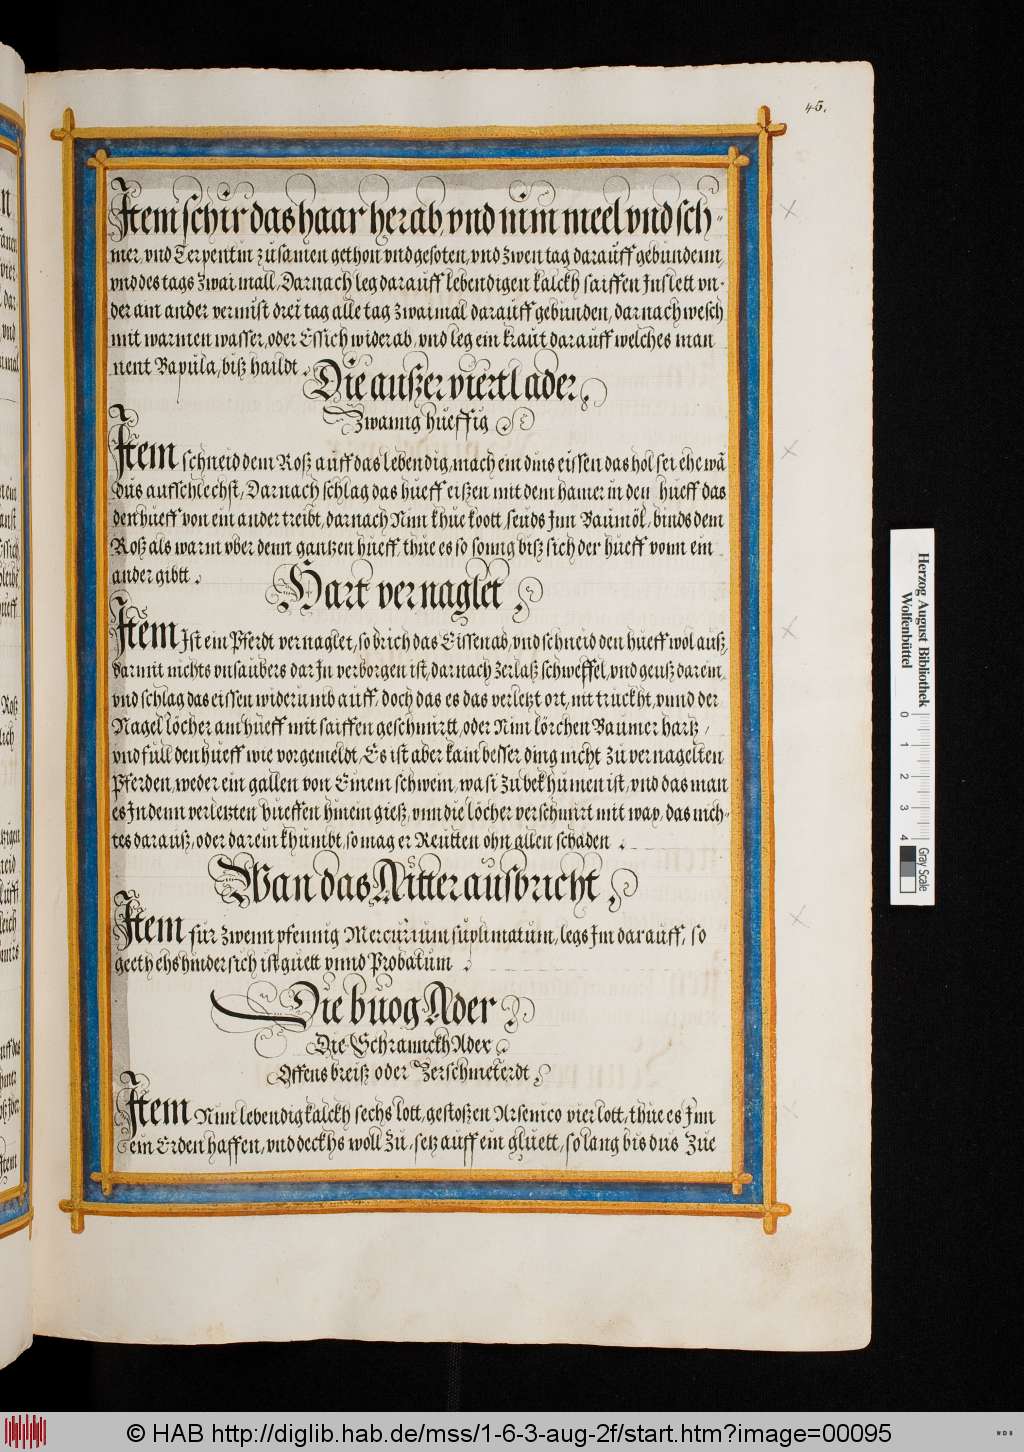 45.
Item schir das haar herab, vnd nim meel vnd sch-
mer, vnd Terpentin zusamen gethon vnd gesoten, vnd zwen tag darauff gebundenn,
vnd des tags zwai mall, Darnach leg darauff lebendigen kalckh saiffen Inslett vn-
der ain ander vermist drei tag alle tag zwaimal darauff gebunden, darnach wesch
mit warmen wasser, oder Essich wider ab, vnd leg ein kraut darauff welches man
nent Bapula, biß haildt.
Die außer viertl ader
Zwanng hueffig
Item schneid dem Roß auff das lebendig, mach ein dins eissen das hol sei ehe wa
dus aufschlechst, Darnach schlag das hueff eißen mit dem hamer in den hueff das
den hueff von ein ander treibt, darnach Nim khue koott, seuds Inn Baumöl, binds dem
Roß als warm vber denn gantzen hueff, thue es so lanng biß sich der hueff vonn ein
ander gibtt.
Hart vernaglet
Item Ist ein Pferdt vernaglet, so brich das Eissen ab, vnd schneid den hueff wol auß,
darmit nichts vnsaubers dar In verborgen ist, darnach zerlaß schweffel, vnd geuß darein,
vnd schlag das eissen widerumb auff, doch das es das verletzt ort, nit truckht, vnnd der
Nagel löcher am hueff mit saiffen geschmirtt, oder Nim lörchen Baumer hartz,
vnd full den hueff wie vorgemeldt, Es ist aber kain besser ding nicht zu vernagelten
Pferden, weder ein gallen von Einem schwein, wa si zu bekhumen ist, vnd das man
es In denn verletzten hueffen hinein gieß, vnn die löcher verschmirt mit wax, das nich-
tes darauß, oder darein khumbt, so mag er Reutten ohn allen schaden.
Wan das Aitter ausbricht
Item für zwenn pfennig Mercurium suplimatum, legs Im darauff, so
geeth ehs hinder sich ist guett vnnd Probatum
Die buog Ader
Die Schrannckh Ader
Offens breiß oder Zerschmeterdt
Item Nim lebendig kalckh sechs lott, gestoßen Arsenico vier lott, thue es Inn
ein Erden haffen, vnd deckhs woll zu, setz auff ein gluett, so lang bis dus Zue
Herzog August Bibliothek
Wolfenbüttel
0 1 2 3 4
Gray Scale
© HAB http://diglib.hab.de/mss/1-6-3-aug-2f/start.htm?image=00095